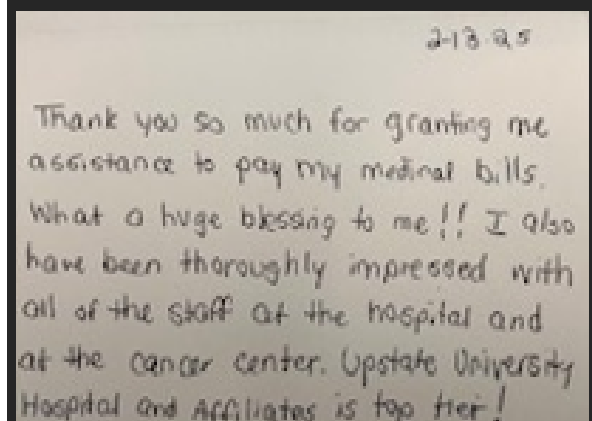 2-13-25
Thank you so much for granting me
assistance to pay my medical bills.
What a huge blessing to me!! I also
have been thoroughly impressed with
all of the staff at the hospital and
at the cancer center. Upstate University
Hospital and Affiliates is top tier!